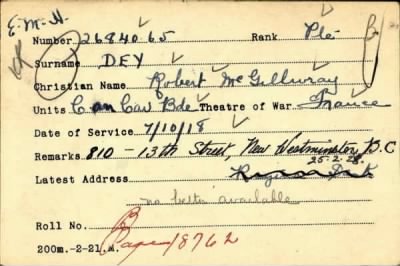 E.M.H.
Number 2684065 Rank Pte
Surname DEY
Christian Name Robert McGillivray
Units Can Cav Bde Theatre of War France
Date of Service 7/10/18
Remarks 810 - 13th Street, New Westminster, B.C
25-2-28.
Latest Address
no better available
Roll No. B
Page 18762
200m.-2-21.